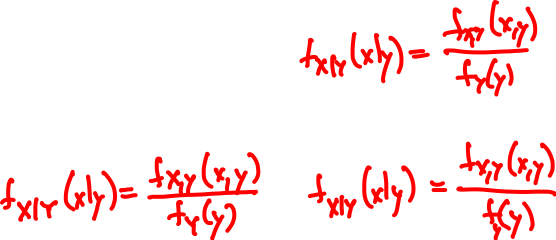 f_{X|Y}(x|y) = \frac{f_{XY}(x,y)}{f_Y(y)}
f_{X|Y}(x|y) = \frac{f_{X,Y}(x,y)}{f_Y(y)} f_{X|Y}(x|y) = \frac{f_{X,Y}(x,y)}{f_Y(y)}